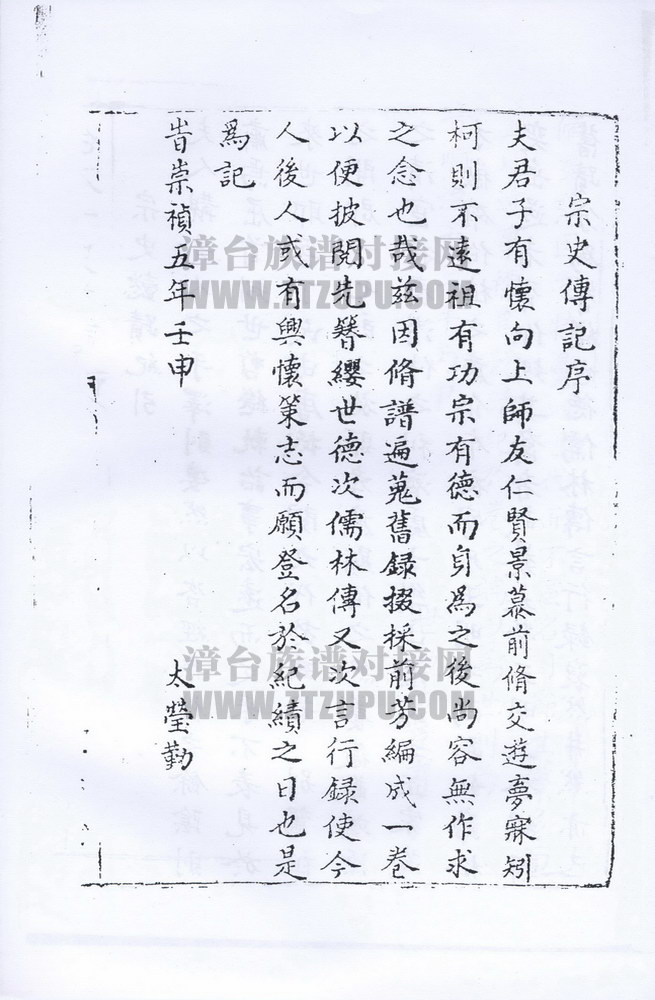 宗史傳記序
夫君子有懷向上師友仁賢景慕前脩交遊夢寐矧
柯則不遠祖有功宗有德而身為之後尚容無作求
之念也哉茲因脩譜遍蒐舊録掇採前芳編成一卷
以便披閱先簪纓世德次儒林傳又次言行録使今
人後人或有興懷策志而願登名於紀績之日也是
爲記
旹崇禎五年壬申
太瑩勤
漳台族谱对接网
WWW.TTZUPU.COM
漳台族谱对接网
WWW.TTZUPU.COM